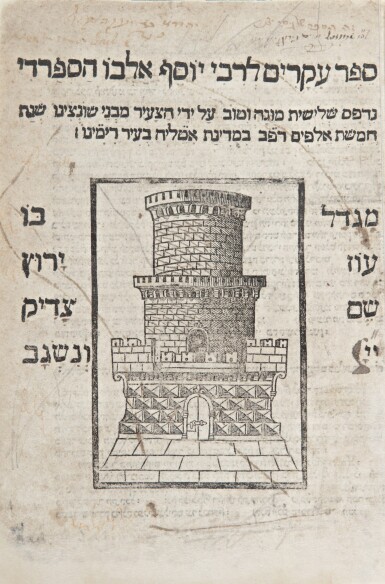 ספר עקרים לרבי יוסף אלבו הספרדי
נדפס שלישית מוגה וטוב על ידי הצעיר מבני שונצינו שנת
חמשת אלפים רפב במדינת אטליה בעיר רימינו :
מגדל בו
עוז ירוץ
שם צדיק
ייי ונשגב